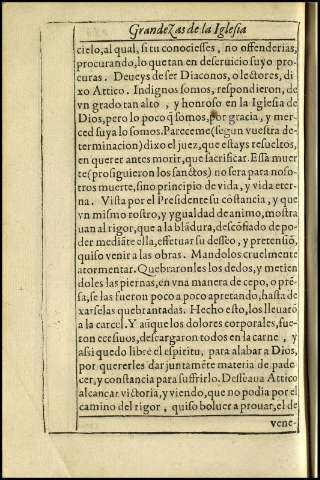 Grandezas de la Iglesia
cielo, al qual, si tu conociesses, no offenderias,
procurando, lo que tan en deseruicio suyo pro-
curas. Deueys de ser Diaconos, o lectores, di-
xo Attico. Indignos somos, respondieron, de
vn grado tan alto, y honroso en la Iglesia de
Dios, pero lo poco q̃ somos, por gracia, y mer-
ced suya lo somos. Pareceme (segun vuestra de-
terminacion) dixo el juez, que estays resueltos,
en querer antes morir, que sacrificar. Essa muer
te (prosiguieron los sanctos) no sera para noso-
tros muerte, sino principio de vida, y vida eter-
na. Vista por el Presidente su cõstancia, y que
vn mismo rostro, y ygualdad de animo, mostra
uan al rigor, que a la blãdura, descõfiado de po-
der mediãte ella, effetuar su desseo, y pretensiõ,
quiso venir a las obras. Mandolos cruelmente
atormentar. Quebraronles los dedos, y metien
doles las piernas, en vna manera de cepo, o prẽ-
sa, se las fueron poco a poco apretando, hasta de
xarselas quebrantadas. Hecho esto, los lleuarõ
a la carcel. Y aũque los dolores corporales, fue-
ron ecesiuos, descargaron todos en la carne, y
assi quedo libre el espiritu, para alabar a Dios,
por quererles dar juntamẽte materia de pade-
cer, y constancia para suffrirlo. Desseaua Attico
alcançar victoria, y viendo, que no podia por el
camino del rigor, quiso boluer a prouar, el de
vene-